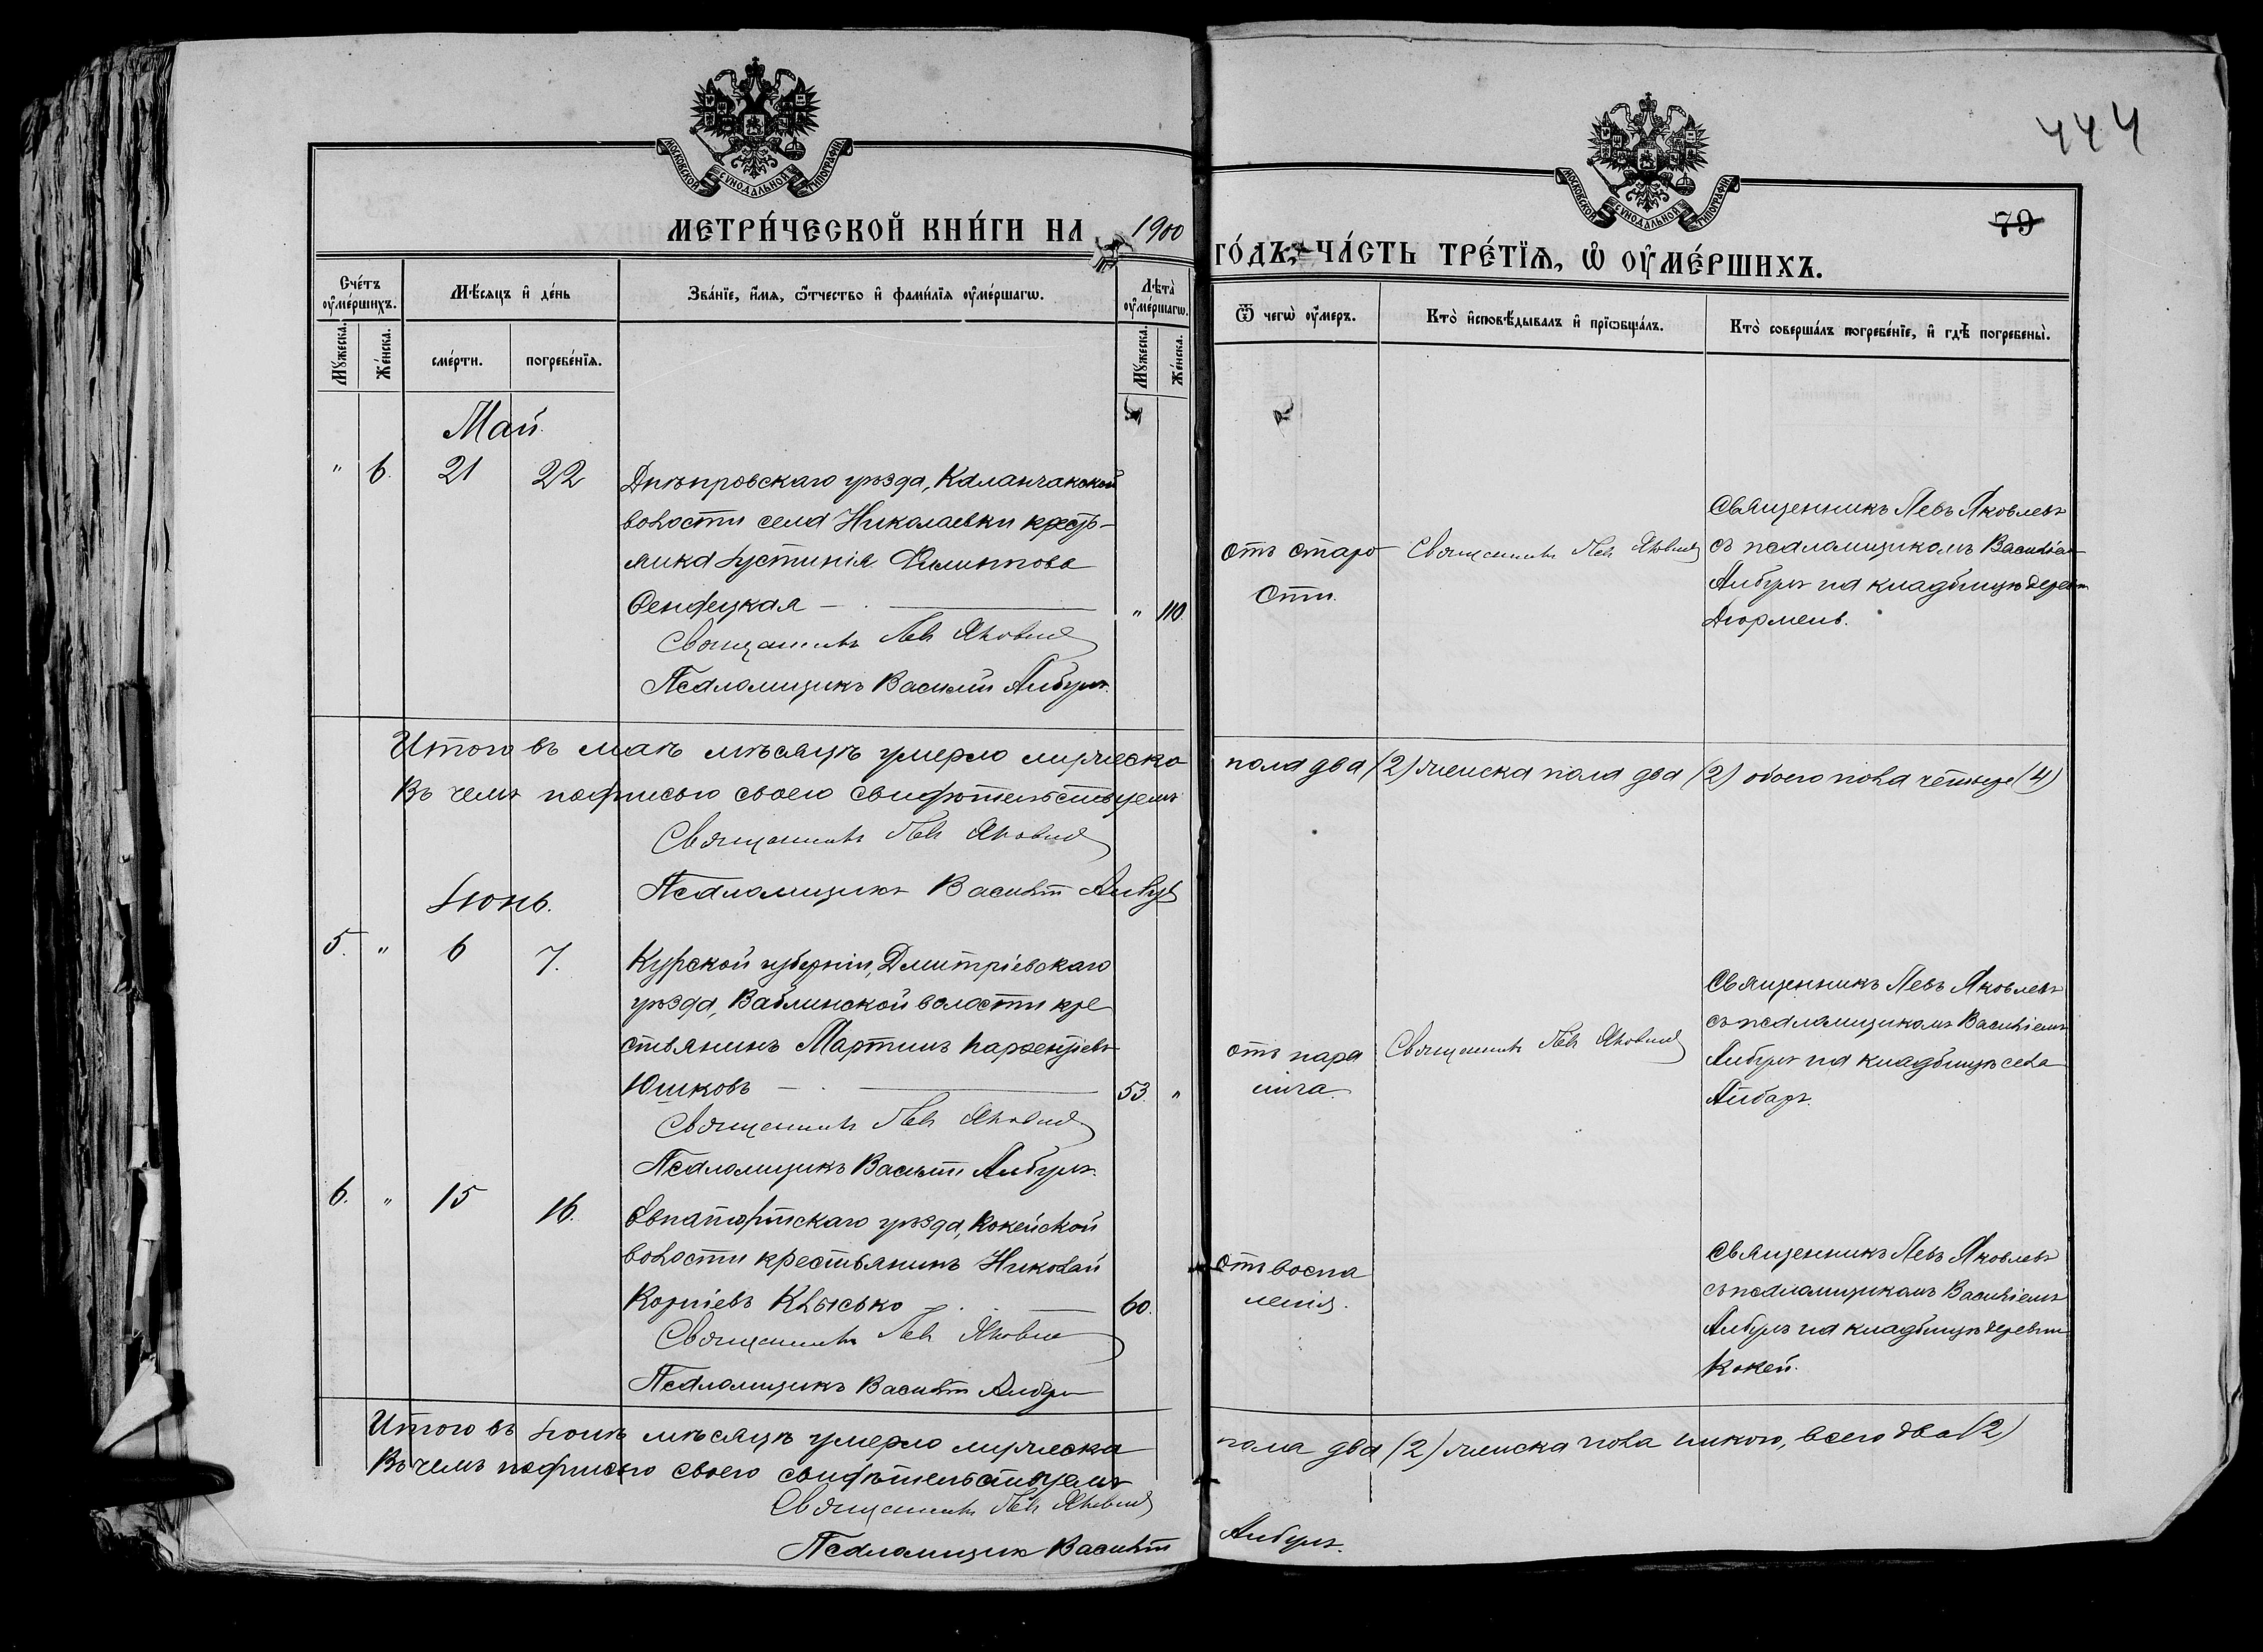 444
МОСКОВСКОЙ СѴНОДАЛЬНОЙ ТИПОГРАФІИ
МОСКОВСКОЙ СѴНОДАЛЬНОЙ ТИПОГРАФІИ
79
МЕТРИ́ЧЕСКОЙ КНИ́ГИ НА 1900
ГО́ДЪ, ЧА́СТЬ ТРЕ́ТЇѦ, Ѽ ОУ҆МЕ́РШИХЪ.
Сче́тъ оу҆ме́ршихъ.
Мꙋ́жеска.
Же́нска.
Мѣ́сяцъ и҆ де́нь
сме́рти.
погребе́нїѧ.
Зва́нїе, и҆́мѧ, ѻ҆́тчество и҆ фами́лїѧ оу҆ме́ршагѡ.
Лѣ́та оу҆ме́ршагѡ.
Мꙋ́жеска.
Же́нска.
Ѿ чегѡ̀ оу҆́меръ.
Кто̀ и҆сповѣ́дывалъ и҆ прїѡбща́лъ.
Кто̀ соверша́лъ погребе́нїе, и҆ гдѣ̀ погребены̀.
Май.
" 6. 21 22
Днѣпровскаго уѣзда, Каланчакской
волости села Николаевки кресть-
янка Іустинія Филиппова
Сенфецкая — " 110.
Священникъ Левъ Яковлевъ
Псаломщикъ Василій Албулъ.
Отъ старо
сти.
Священникъ Левъ Яковлевъ
Священникъ Левъ Яковлевъ
съ псаломщикомъ Василіем
Албулъ на кладбищѣ дерев
Дюрмень.
Итого въ маѣ мѣсяцѣ умерло мужеска
пола два (2) женска пола два (2) обоего пола четыре (4)
Въ чемъ подписью своею свидѣтельствуемъ
Священникъ Левъ Яковлевъ
Псаломщикъ Василій Албулъ
Іюнь.
5. " 6 7.
Курской губерніи, Дмитріевскаго
уѣзда, Ваблинской волости кре
стьянинъ Мартинъ Парѳентіевъ
Юшковъ — 53. "
Священникъ Левъ Яковлевъ
Псаломщикъ Василій Албулъ.
отъ пара
лича.
Священникъ Левъ Яковлевъ
Священникъ Левъ Яковлевъ
съ псаломщикомъ Василіемъ
Албулъ на кладбищѣ села
Айбаръ.
6. " 15 16.
Евпаторійскаго уѣзда, Кокейской
волости крестьянинъ Николай
Корніевъ Клысько — 60.
Священникъ Левъ Яковлевъ
Псаломщикъ Василій Албулъ
Отъ воспа
ленія.
Священникъ Левъ Яковлевъ
съ псаломщикомъ Василіемъ
Албулъ на кладбищѣ деревни
Кокей.
Итого въ Іюнѣ мѣсяцѣ умерло мужеска
пола два (2) женска пола никого, всего два (2)
Въ чемъ подписью своею свидѣтельствуемъ
Священникъ Левъ Яковлевъ
Псаломщик Василій Албулъ.